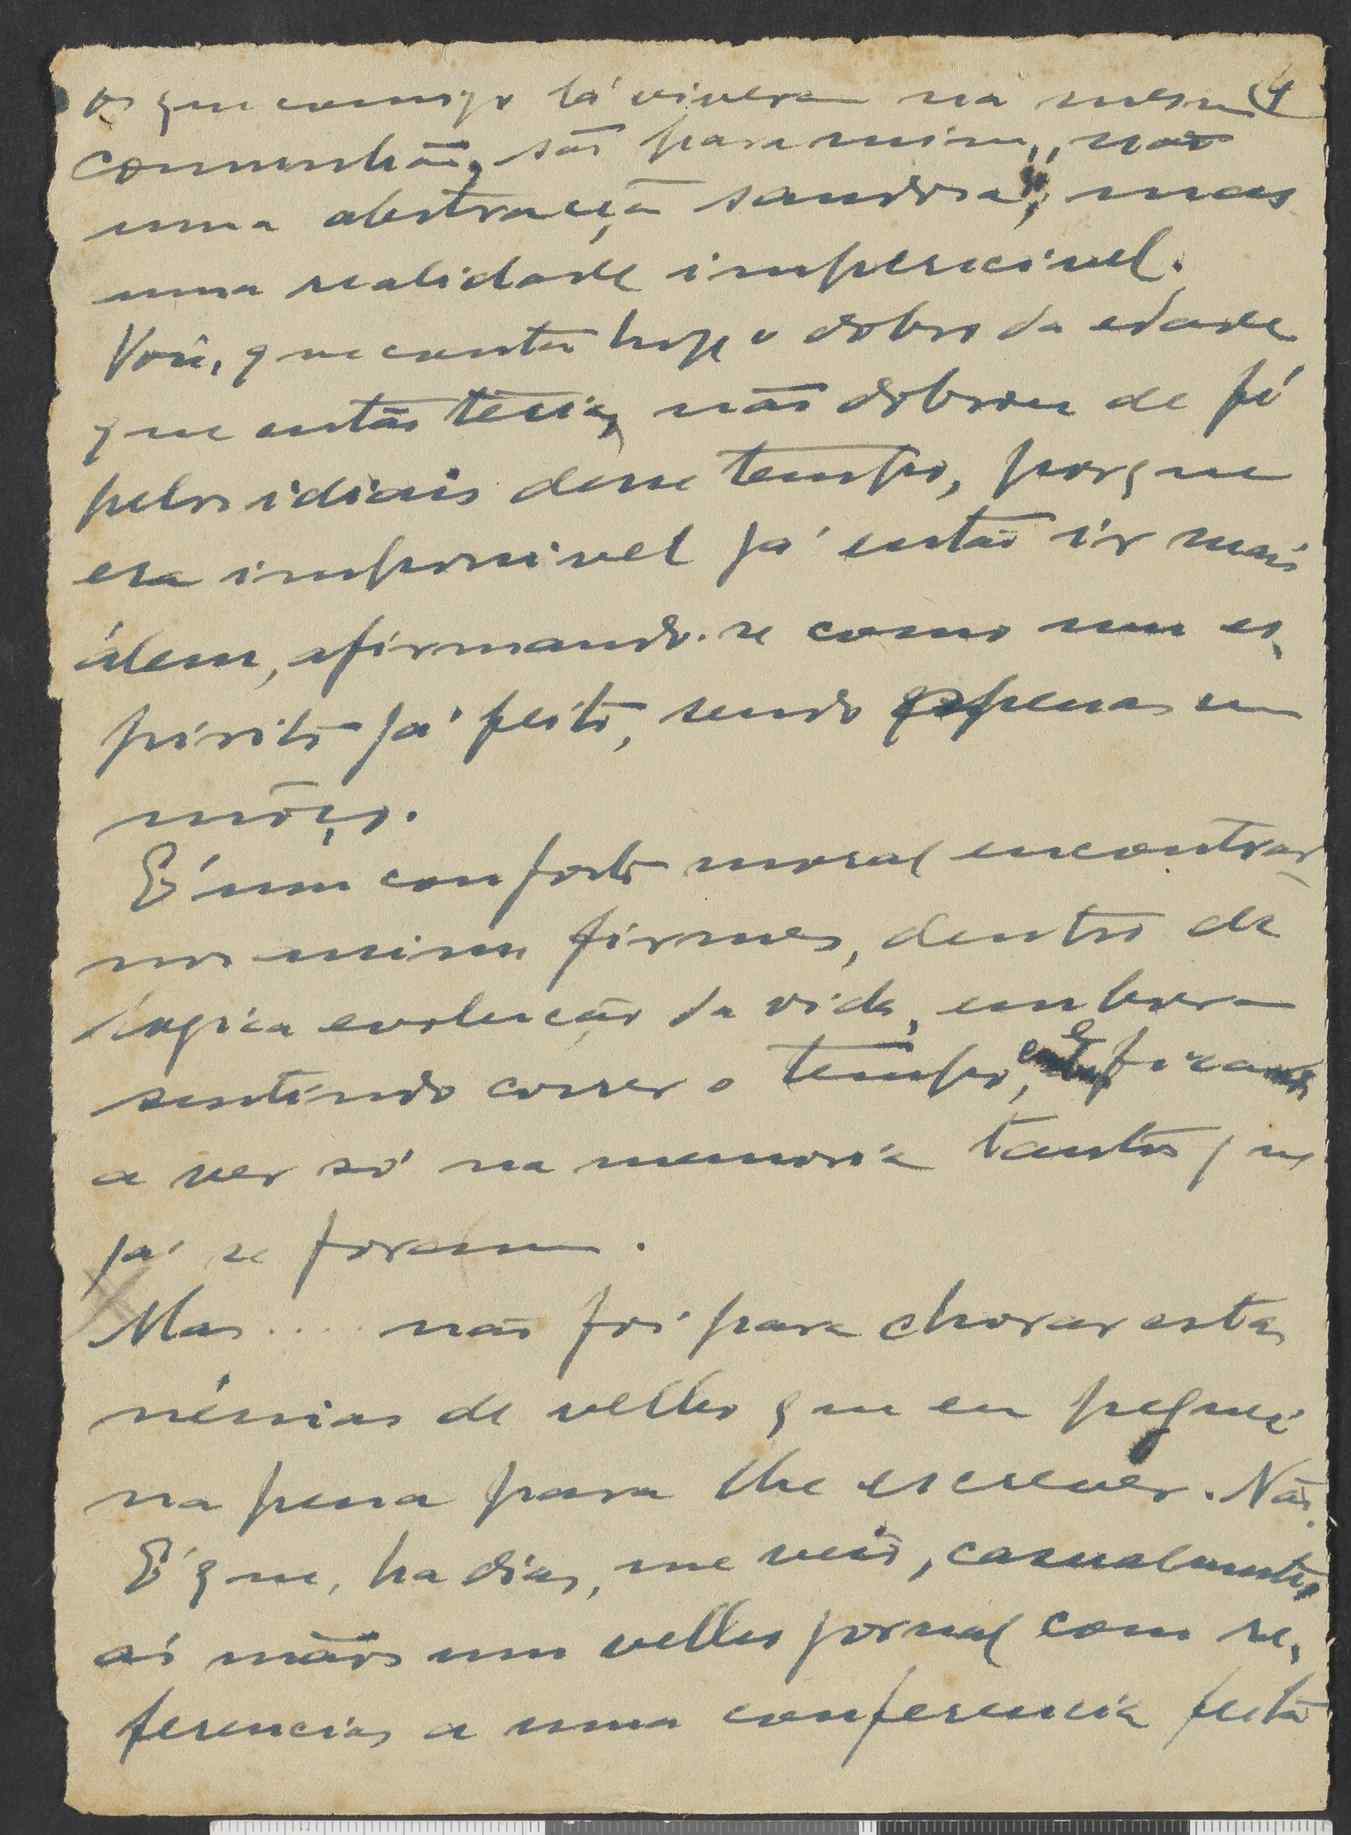 os que comigo lá viveram na mesma 4
comunhão, são para mim, não
uma abstracção saudosa, mas
uma realidade imperecivel.
Você, que conta hoje o dobro da edade
que então teria, não dobrou de fé
pelos idiais desse tempo, porque
era impossivel já então ir mais
álem, afirmando-se como um es-
pirito já feito, sendo apenas um
môço.
É um conforto moral encontrar-
nos firmes, dentro da
lógica evolução da vida, embora
sentindo correr o tempo, e
a ver só na memoria tantos que
já se foram.
Mas.... não foi para chorar estas
nénias de velho que eu peguei
na pena para lhe escrever. Não.
É que, ha dias, me veio, casualmente,
ás mãos um velho jornal com re-
ferencias a uma conferencia feita